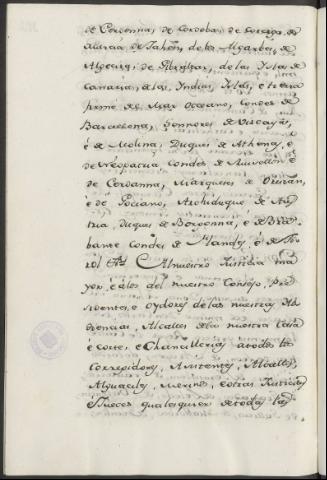 de Cerdenna, de Cordoba, de Corcega, de
Murcia de Jahen, de los Algarbes, de
Algecira, de Gibraltar, de las Islas de
Canaria, de las Indias, Islas, e tierra
firme del Mar Oceano, Condes de
Barcelona, Sennores de Vizcaya,
e de Molina, Duques de Athenas, e
de Neopatria Condes de Ruisellon, e
de Cerdanna, Marqueses de Oristan,
e de Gociano, Archiduque de Aus
tria, Duques de Borgonna, e de Bra
bante Condes de Flandes, e de Ti
rol etc. Al nuestro Justicia ma
yor, e a los del nuestro Consejo, Pre
sidentes, e Oydores de las nuestras Au
diencias, Alcaldes de la nuestra Casa
e corte, e Chancillerias a todos los
Corregidores, Asistentes, Alcaldes,
Alguaciles, Merinos, e otras Justicias
e Jueces qualesquier de todas las